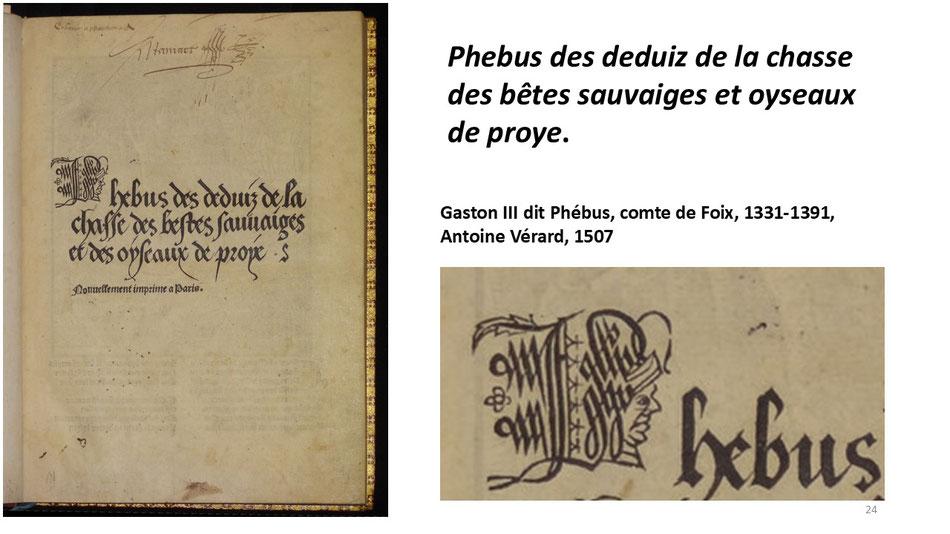 Phebus des deduiz de la
chasse des bestes sauuaiges
et des oyseaux de proye . S
Nouuellement imprime a Paris.
Phebus des deduiz de la chasse
des bêtes sauvaiges et oyseaux
de proye.
Gaston III dit Phébus, comte de Foix, 1331-1391,
Antoine Vérard, 1507
Phebus
24